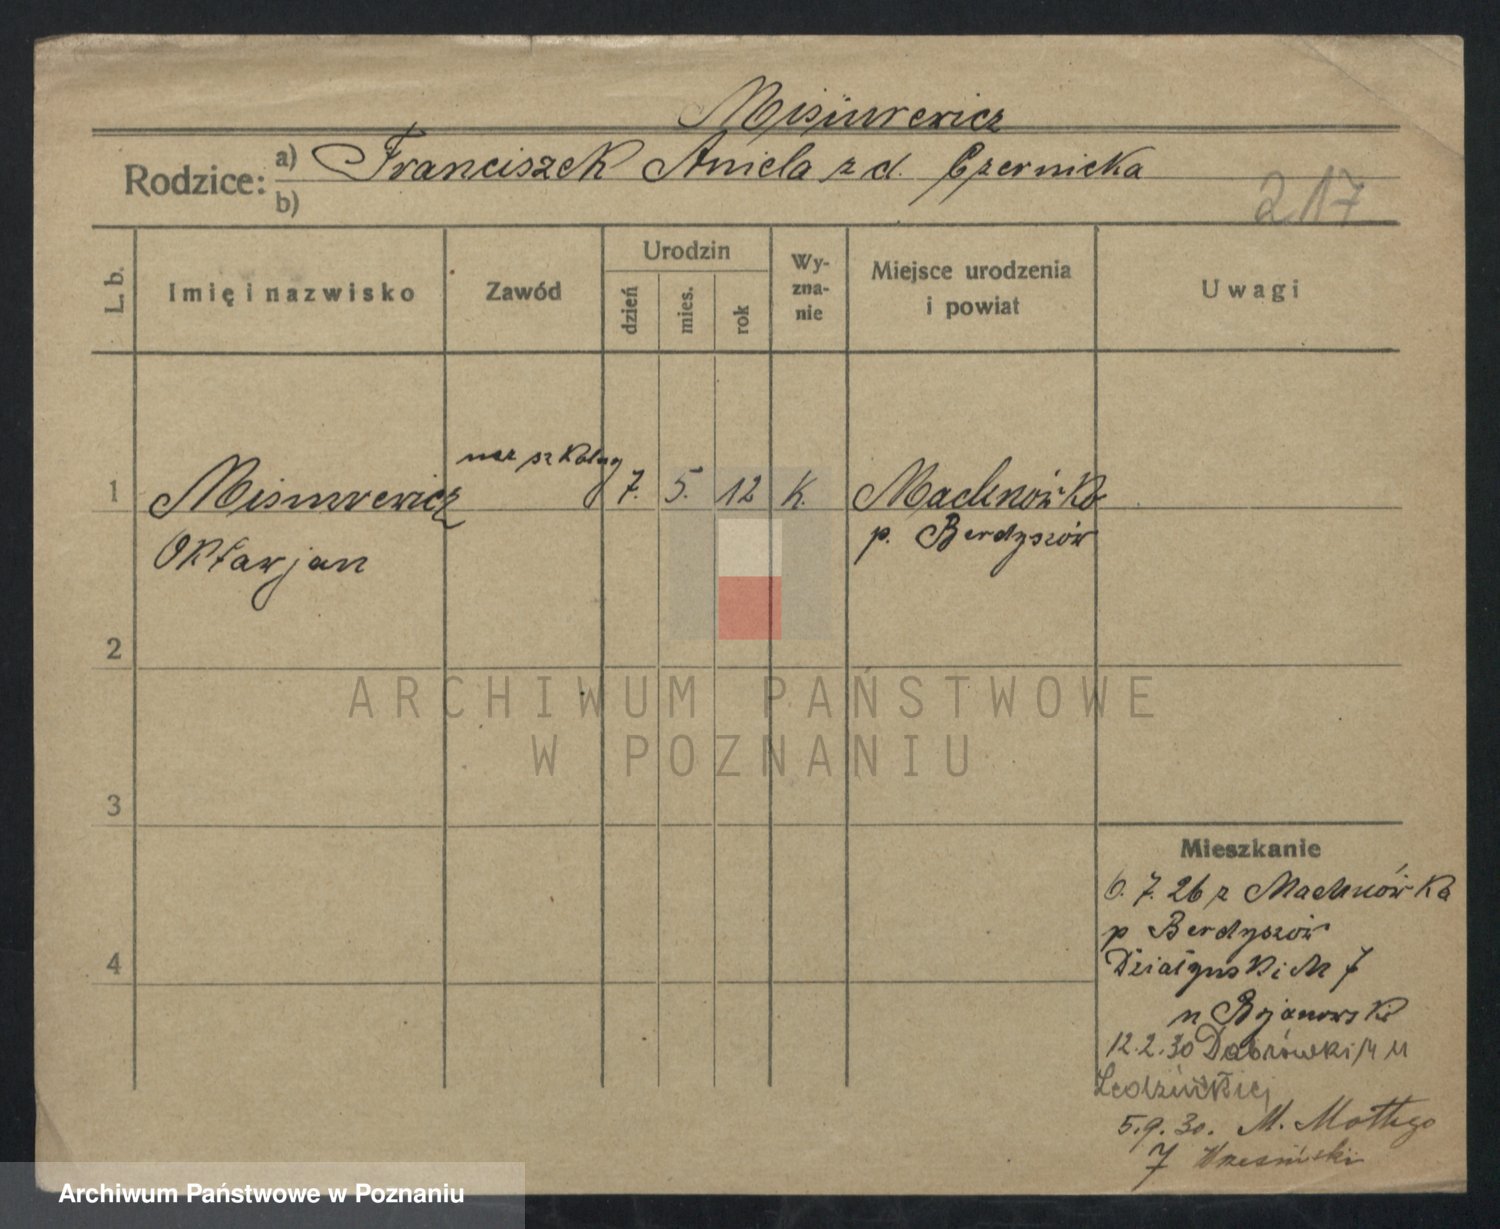 Misiurewicz
Rodzice: a) Franciszek Aniela z d. Czernicka
b)
217
L. b.
Imię i nazwisko
Zawód
Urodzin
dzień
mies.
rok
Wy-
zna-
nie
Miejsce urodzenia
i powiat
Uwagi
ucz szkolny
1 Misiurewicz 7. 5. 12 k. Machnówka
Oktawjan p. Berdyszów
2
ARCHIWUM PAŃSTWOWE
W POZNANIU
3
Mieszkanie
6. 7. 26 z Machnówka
p Berdyszów
4
Działyńskich 7
u Bojanowski
12.2.30 Dąbrówki 14 u
5.9.30. M. Mottego
7 Wresiński
Archiwum Państwowe w Poznaniu